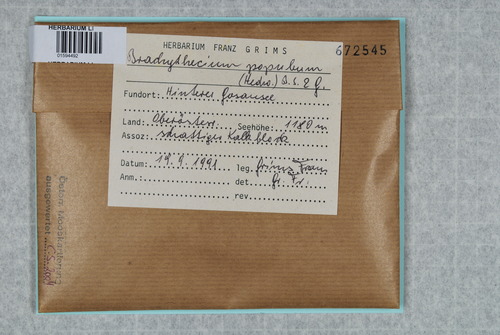 HERBARIUM LI
01594492
HERBARIUM LI
HERBARIUM FRANZ GRIMS
672545
Brachythecium populeum
(Hedw.) B. S. & G.
Fundort: Hinterer Gosausee
Land: Oberösterr. Seehöhe: 1180 m
Assoz: schattiger Kalkblock
Datum: 19. 9. 1991 leg. Grims Franz
Anm.: det. Gr. Fr.
rev.
Daten. Moostkartierung
ausgewertet